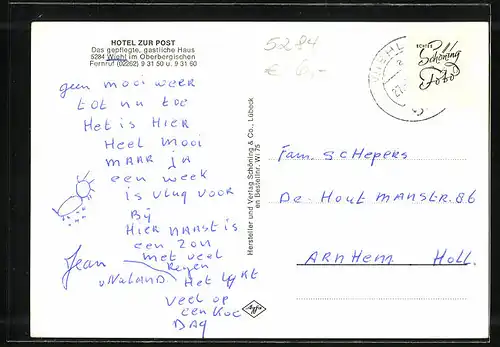 HOTEL ZUR POST
Das gepflegte, gastliche Haus
5284 Wiehl im Oberbergischen
Fernruf (02262) 9 31 50 u. 9 31 60
5284
€ 6,-
WIEHL
ECHTES
Schöning
Foto
geen mooi weer
tot nu toe
Het is HIER
Heel mooi
MAAR ja
een week
is vlug voor
Bij
HIER NAAST is
een Zon
met veel
Regen
Jean
Het lijkt
veel op
een koe
DAG
Hersteller und Verlag Schöning & Co., Lübeck
en Bestellnr. Wi 75
Fam. Schepers
De. Hout manstr. 86
ARNHEM Holl.
Agfa